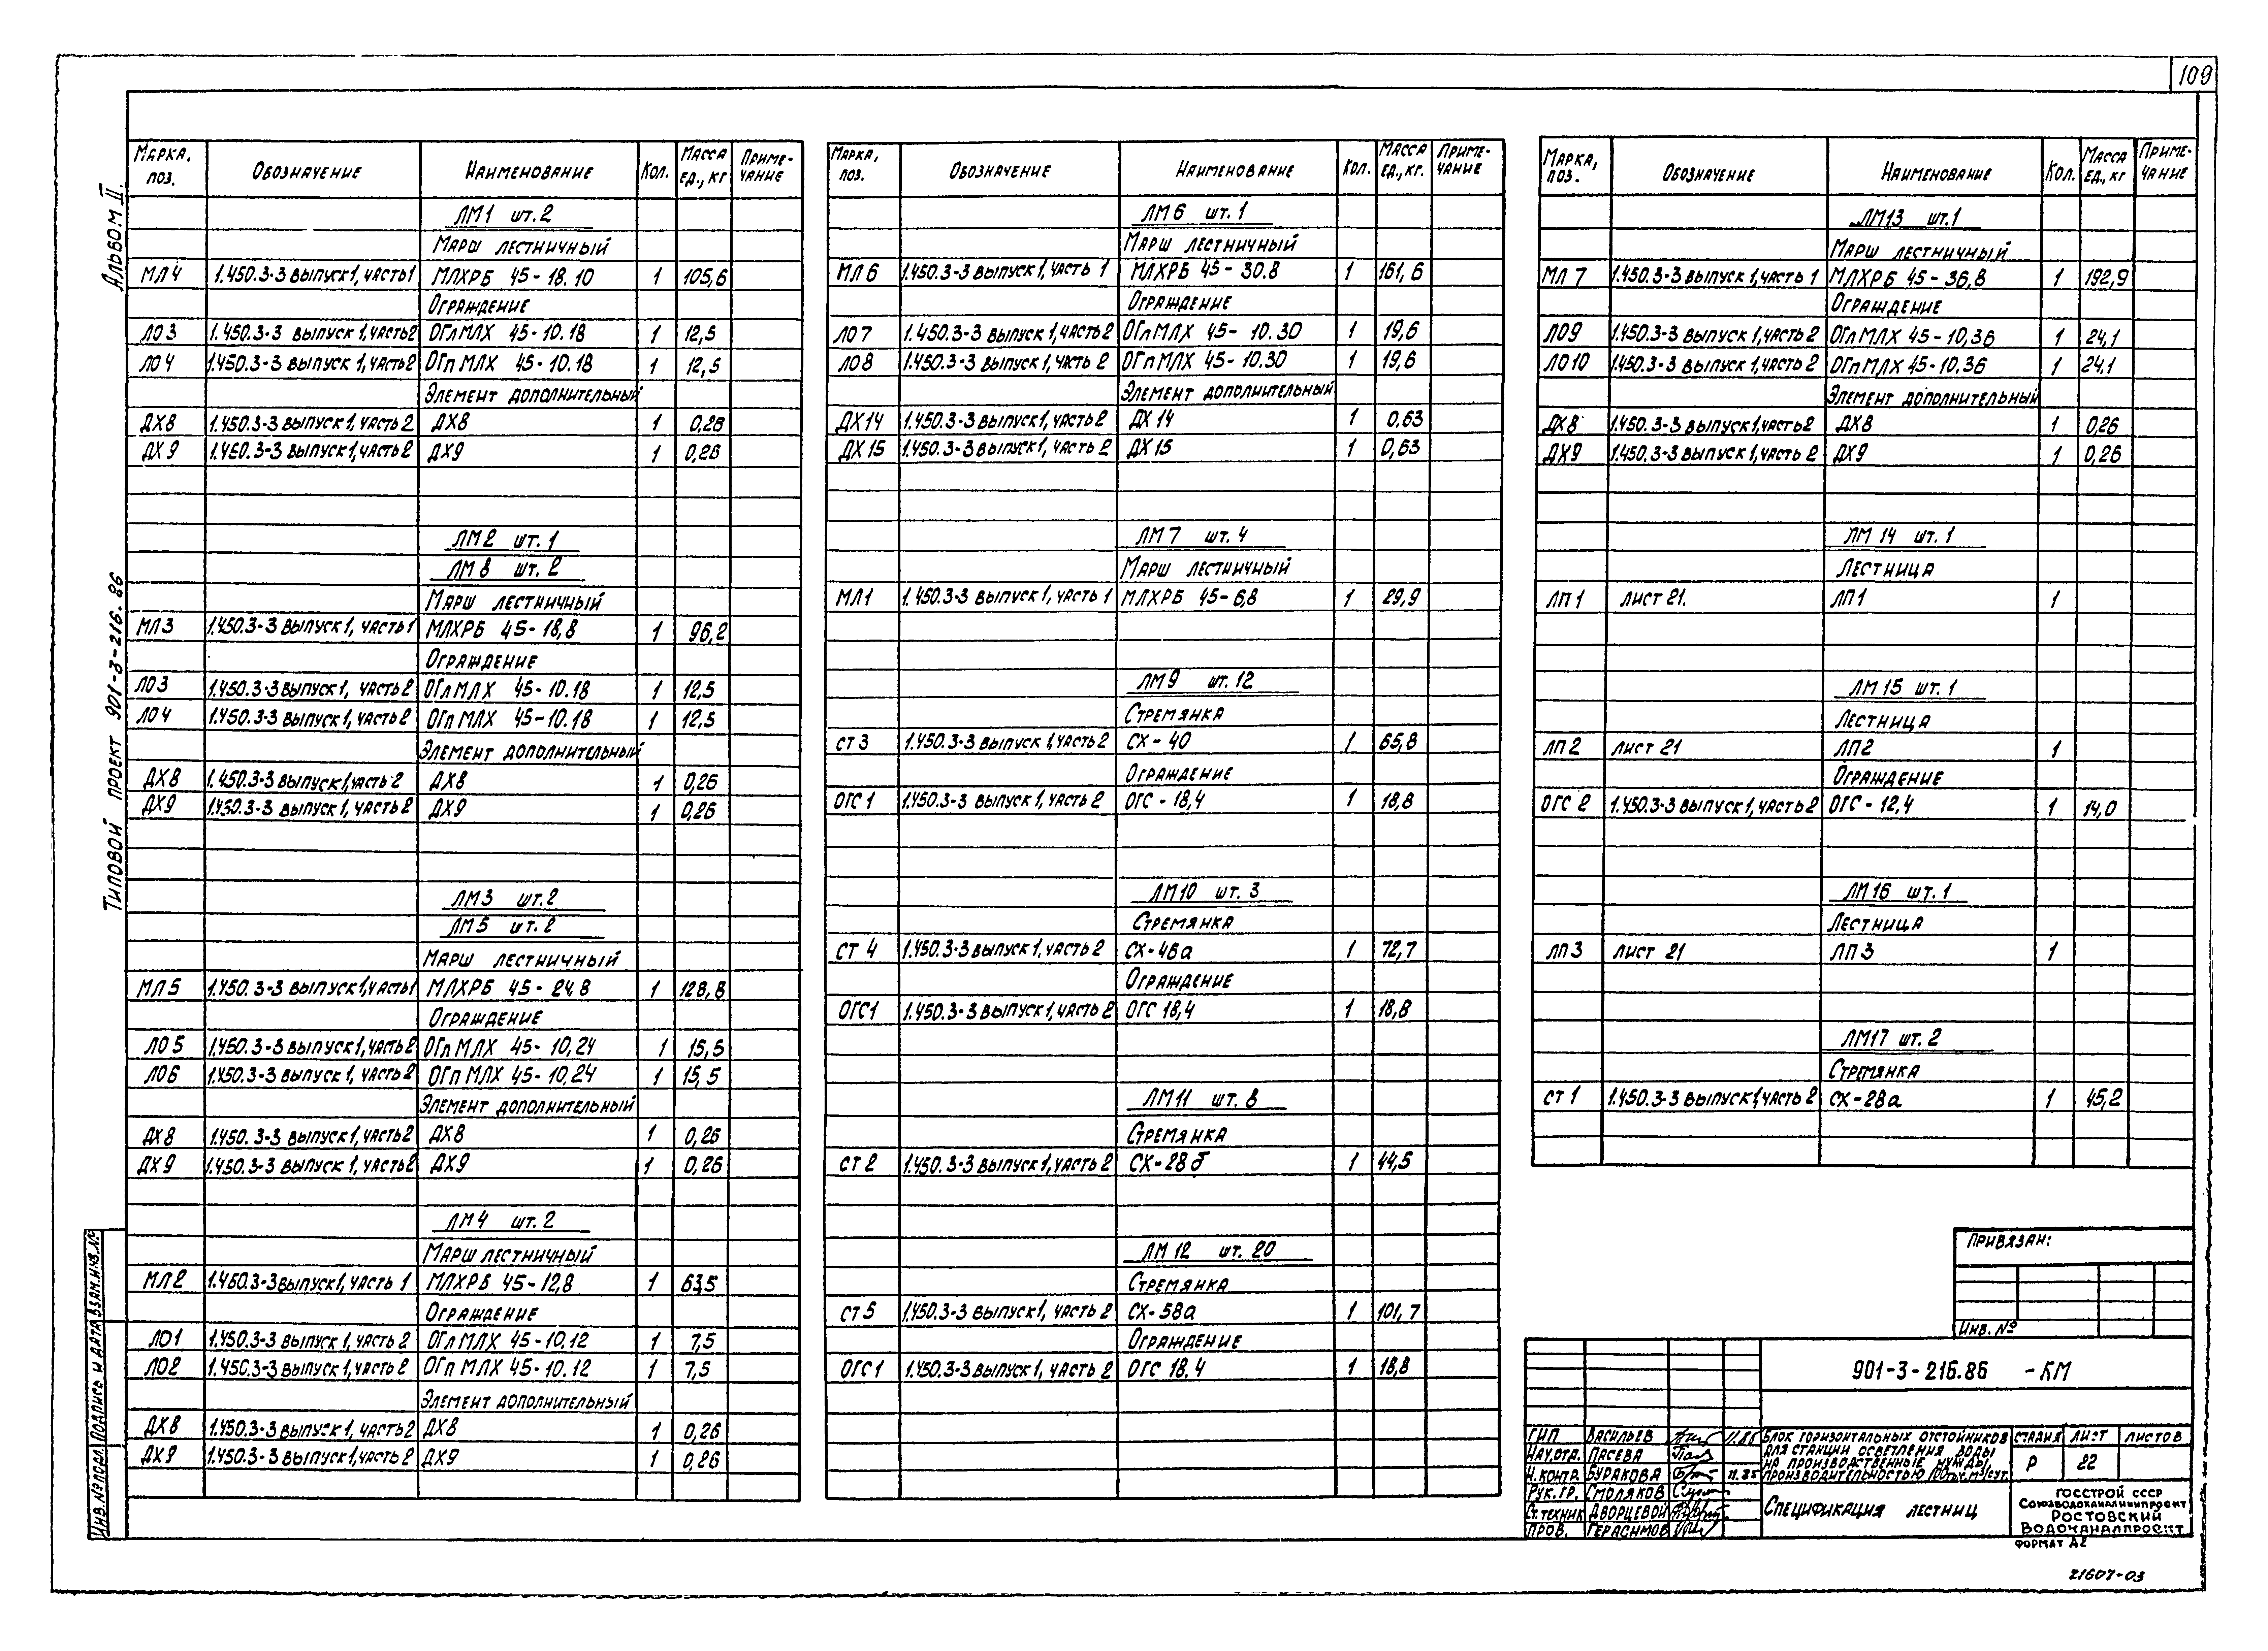 109
Альбом II.
Типовой проект 901-3-216.86
Марка, поз. Обозначение Наименование Кол. Масса ед., кг Примечание
ЛМ1 шт.2
Марш лестничный
МЛ4 1.450.3-3 выпуск 1, часть 1 МЛХРБ 45-18.10 1 105,6
Ограждение
ЛО3 1.450.3-3 выпуск 1, часть 2 ОГлМЛХ 45-10.18 1 12,5
ЛО4 1.450.3-3 выпуск 1, часть 2 ОГпМЛХ 45-10.18 1 12,5
Элемент дополнительный
ДХ8 1.450.3-3 выпуск 1, часть 2 ДХ8 1 0,26
ДХ9 1.450.3-3 выпуск 1, часть 2 ДХ9 1 0,26
ЛМ2 шт.1
ЛМ8 шт.2
Марш лестничный
МЛ3 1.450.3-3 выпуск 1, часть 1 МЛХРБ 45-18,8 1 96,2
Ограждение
ЛО3 1.450.3-3 выпуск 1, часть 2 ОГлМЛХ 45-10.18 1 12,5
ЛО4 1.450.3-3 выпуск 1, часть 2 ОГпМЛХ 45-10.18 1 12,5
Элемент дополнительный
ДХ8 1.450.3-3 выпуск 1, часть 2 ДХ8 1 0,26
ДХ9 1.450.3-3 выпуск 1, часть 2 ДХ9 1 0,26
ЛМ3 шт.2
ЛМ5 шт.2
Марш лестничный
МЛ5 1.450.3-3 выпуск 1, часть 1 МЛХРБ 45-24.8 1 128,8
Ограждение
ЛО5 1.450.3-3 выпуск 1, часть 2 ОГл МЛХ 45-10,24 1 15,5
ЛО6 1.450.3-3 выпуск 1, часть 2 ОГп МЛХ 45-10,24 1 15,5
Элемент дополнительный
ДХ8 1.450.3-3 выпуск 1, часть 2 ДХ8 1 0,26
ДХ9 1.450.3-3 выпуск 1, часть 2 ДХ9 1 0,26
ЛМ4 шт.2
Марш лестничный
МЛ2 1.450.3-3 выпуск 1, часть 1 МЛХРБ 45-12,8 1 63,5
Ограждение
ЛО1 1.450.3-3 выпуск 1, часть 2 ОГл МЛХ 45-10.12 1 7,5
ЛО2 1.450.3-3 выпуск 1, часть 2 ОГп МЛХ 45-10.12 1 7,5
Элемент дополнительный
ДХ8 1.450.3-3 выпуск 1, часть 2 ДХ8 1 0,26
ДХ9 1.450.3-3 выпуск 1, часть 2 ДХ9 1 0,26
Марка, поз. Обозначение Наименование Кол. Масса ед., кг. Примечание
ЛМ6 шт.1
Марш лестничный
МЛ6 1.450.3-3 выпуск 1, часть 1 МЛХРБ 45-30.8 1 161,6
Ограждение
ЛО7 1.450.3-3 выпуск 1, часть 2 ОГлМЛХ 45-10.30 1 19,6
ЛО8 1.450.3-3 выпуск 1, часть 2 ОГпМЛХ 45-10.30 1 19,6
Элемент дополнительный
ДХ14 1.450.3-3 выпуск 1, часть 2 ДХ14 1 0,63
ДХ15 1.450.3-3 выпуск 1, часть 2 ДХ15 1 0,63
ЛМ7 шт.4
Марш лестничный
МЛ1 1.450.3-3 выпуск 1, часть 1 МЛХРБ 45-6,8 1 29,9
ЛМ9 шт.12
Стремянка
СТ3 1.450.3-3 выпуск 1, часть 2 СХ-40 1 65,8
Ограждение
ОГС1 1.450.3-3 выпуск 1, часть 2 ОГС-18,4 1 18,8
ЛМ10 шт.3
Стремянка
СТ4 1.450.3-3 выпуск 1, часть 2 СХ-46а 1 72,7
Ограждение
ОГС1 1.450.3-3 выпуск 1, часть 2 ОГС 18,4 1 18,8
ЛМ11 шт.8
Стремянка
СТ2 1.450.3-3 выпуск 1, часть 2 СХ-28б 1 44,5
ЛМ12 шт.20
Стремянка
СТ5 1.450.3-3 выпуск 1, часть 2 СХ-58а 1 101,7
Ограждение
ОГС1 1.450.3-3 выпуск 1, часть 2 ОГС 18.4 1 18,8
Марка, поз. Обозначение Наименование Кол. Масса ед., кг Примечание
ЛМ13 шт.1
Марш лестничный
МЛ7 1.450.3-3 выпуск 1, часть 1 МЛХРБ 45-36,8 1 192,9
Ограждение
ЛО9 1.450.3-3 выпуск 1, часть 2 ОГлМЛХ 45-10,36 1 24,1
ЛО10 1.450.3-3 выпуск 1, часть 2 ОГпМЛХ 45-10.36 1 24,1
Элемент дополнительный
ДХ8 1.450.3-3 выпуск 1, часть 2 ДХ8 1 0,26
ДХ9 1.450.3-3 выпуск 1, часть 2 ДХ9 1 0,26
ЛМ14 шт.1
Лестница
ЛП1 лист 21. ЛП1 1
ЛМ15 шт.1
Лестница
ЛП2 лист 21 ЛП2 1
Ограждение
ОГС2 1.450.3-3 выпуск 1, часть 2 ОГС-12,4 1 14,0
ЛМ16 шт.1
Лестница
ЛП3 лист 21 ЛП3 1
ЛМ17 шт.2
Стремянка
СТ1 1.450.3-3 выпуск 1, часть 2 СХ-28а 1 45,2
Привязан:
Инв. №
901-3-216.86 -КМ
ГИП Васильев 11.85
Нач.отд. Пасева
Н. контр. Буракова 11.85
Рук. гр. Смоляков
Ст.техник Дворцевой
Пров. Герасимов
Блок горизонтальных отстойников
для станции осветления воды
на производственные нужды,
производительностью 100 тыс.м³/сут.
Стадия Лист Листов
Р 22
Спецификация лестниц
Госстрой СССР
Союзводоканалниипроект
Ростовский
Водоканалпроект
Формат А2
21607-03
Инв. № подл. Подпись и дата Взам.инв.№